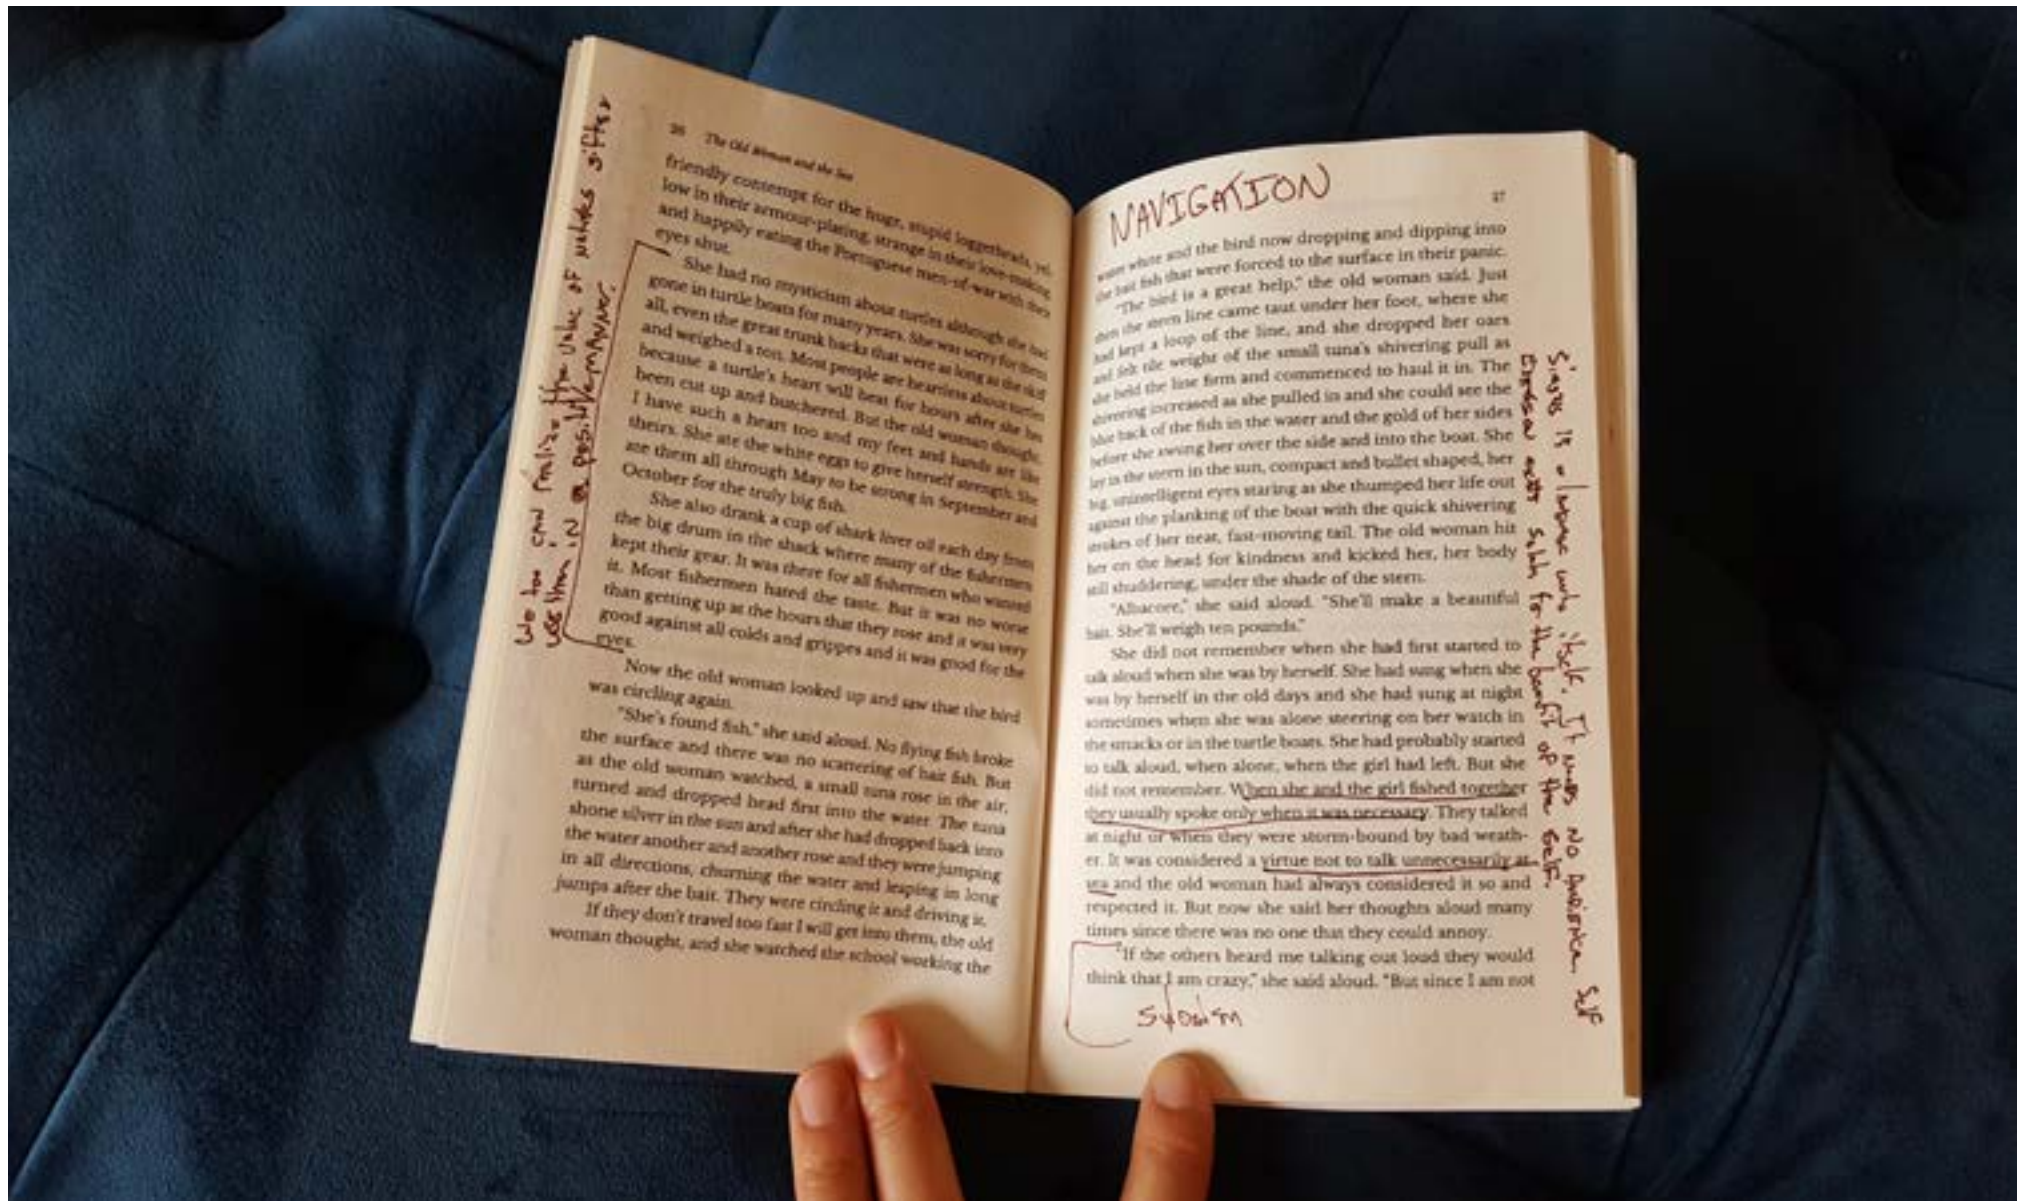 26 The Old Woman and the Sea
friendly contempt for the huge, stupid loggerheads, yel-
low in their armour-plating, strange in their love-making,
and happily eating the Portuguese men-of-war with their
eyes shut.
She had no mysticism about turtles although she had
gone in turtle boats for many years. She was sorry for them
all, even the great trunk backs that were as long as the skiff
and weighed a ton. Most people are heartless about turtles
because a turtle's heart will beat for hours after she has
been cut up and butchered. But the old woman thought,
I have such a heart too and my feet and hands are like
theirs. She ate the white eggs to give herself strength. She
ate them all through May to be strong in September and
October for the truly big fish.
She also drank a cup of shark liver oil each day from
the big drum in the shack where many of the fishermen
kept their gear. It was there for all fishermen who wanted
it. Most fishermen hated the taste. But it was no worse
than getting up at the hours that they rose and it was very
good against all colds and grippes and it was good for the
eyes.
Now the old woman looked up and saw that the bird
was circling again.
"She's found fish," she said aloud. No flying fish broke
the surface and there was no scattering of bait fish. But
as the old woman watched, a small tuna rose in the air,
turned and dropped head first into the water. The tuna
shone silver in the sun and after she had dropped back into
the water another and another rose and they were jumping
in all directions, churning the water and leaping in long
jumps after the bait. They were circling it and driving it.
If they don't travel too fast I will get into them, the old
woman thought, and she watched the school working the
We too can realize the value of natures gifts &
use them in a positive MANNER.
NAVIGATION
27
water white and the bird now dropping and dipping into
the bait fish that were forced to the surface in their panic.
"The bird is a great help," the old woman said. Just
then the stern line came taut under her foot, where she
had kept a loop of the line, and she dropped her oars
and felt tile weight of the small tuna's shivering pull as
she held the line firm and commenced to haul it in. The
shivering increased as she pulled in and she could see the
blue back of the fish in the water and the gold of her sides
before she swung her over the side and into the boat. She
lay in the stern in the sun, compact and bullet shaped, her
big, unintelligent eyes staring as she thumped her life out
against the planking of the boat with the quick shivering
strokes of her neat, fast-moving tail. The old woman hit
her on the head for kindness and kicked her, her body
still shuddering, under the shade of the stern.
"Albacore," she said aloud. "She'll make a beautiful
bait. She'll weigh ten pounds."
She did not remember when she had first started to
talk aloud when she was by herself. She had sung when she
was by herself in the old days and she had sung at night
sometimes when she was alone steering on her watch in
the smacks or in the turtle boats. She had probably started
to talk aloud, when alone, when the girl had left. But she
did not remember. When she and the girl fished together
they usually spoke only when it was necessary. They talked
at night or when they were storm-bound by bad weath-
er. It was considered a virtue not to talk unnecessarily at
sea and the old woman had always considered it so and
respected it. But now she said her thoughts aloud many
times since there was no one that they could annoy.
"If the others heard me talking out loud they would
think that I am crazy," she said aloud. "But since I am not
is itself. It needs no Audience. Self
for the benefit of the Self.